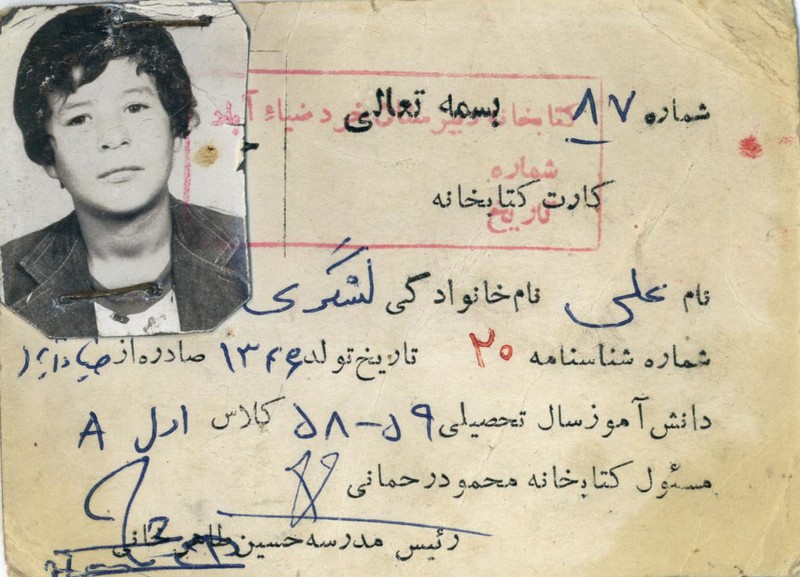 بسمه تعالی
شماره ۸۷
کتابخانه دبیرستان خرد ضیاء آباد
شماره
تاریخ
کارت کتابخانه
نام علی نام خانوادگی لشگری
شماره شناسنامه ۲۰ تاریخ تولد ۱۳۴۶ صادره از ضیاءآباد
دانش آموز سال تحصیلی ۵۹-۵۸ کلاس اول A
مسئول کتابخانه محمود رحمانی
رئیس مدرسه حسین طاهرخانی